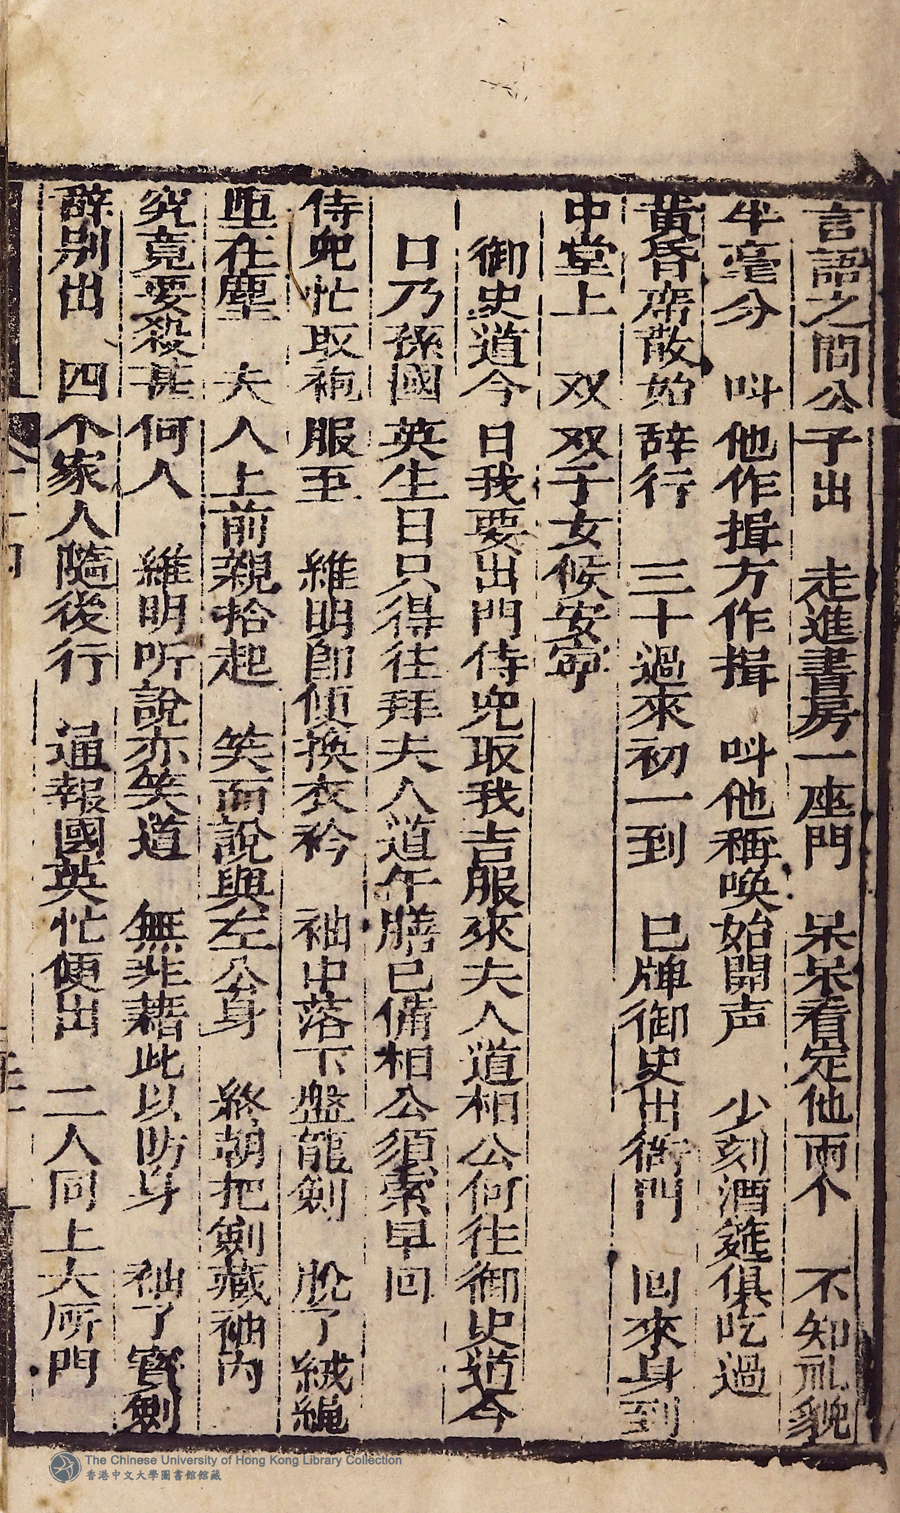 言語之間公子出　走進書房一座門　呆呆看定他兩个　不知礼貌
半毫分　叫他作揖方作揖　叫他称唤始開声　少刻酒筵俱吃過
黄昏席散始辞行　三十過來初一到　巳牌御史出衙門　回來身到
中堂上　双双子女候安寧
御史道今日我要出門侍児取我吉服來夫人道相公何往御史道今
日乃孫國英生日只得往拜夫人道午膳已備相公須索早回
侍児忙取袍服至　維明即便換衣衿　袖中落下盤龍劍　脫了絨繩
墜在塵　夫人上前親拾起　笑面說與左公身　終朝把劍藏袖內
究竟要殺甚何人　維明听說亦笑道　無非藉此以防身　袖了寳劍
辞别出　四个家人隨後行　通報國英忙便出　二人同上大所門
The Chinese University of Hong Kong Library Collection
香港中文大學圖書館館藏